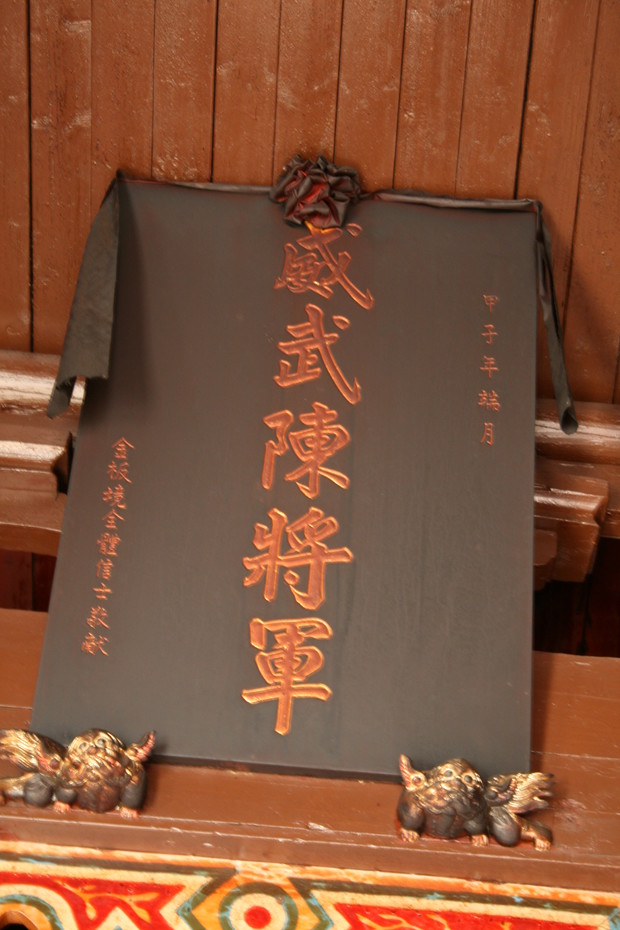 甲子年端月
威武陳將軍
金板境全體信士敬献